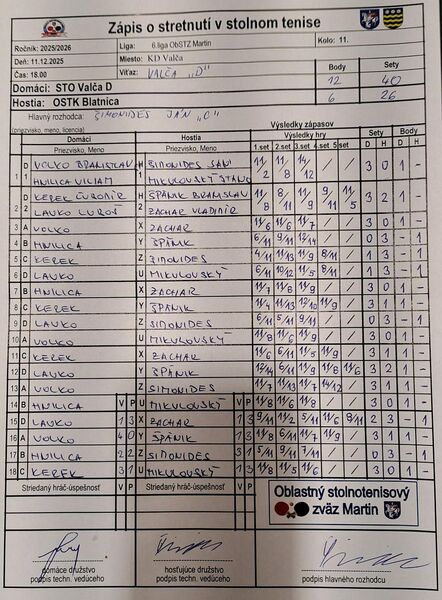 Zápis o stretnutí v stolnom tenise
Ročník: 2025/2026 Liga: 6.liga ObSTZ Martin Kolo: 11.
Deň: 11.12.2025 Miesto: KD Valča
Čas: 18.00 Víťaz: VALČA "D" Body Sety
Domáci: STO Valča D 12 40
Hostia: OSTK Blatnica 6 26
Hlavný rozhodca: ŠIMONIDES JÁN "C"
(priezvisko, meno, licencia)
Výsledky zápasov
Domáci Hostia Výsledky hry Sety Body
Priezvisko, Meno Priezvisko, Meno 1.set 2.set 3.set 4.set 5.set D H D H
1 D1 VOLKO BRANISLAV H1 ŠIMONIDES JÁN 11/2 11/8 14/12 / / 3 0 1 -
HNILICA VILIAM MIKULOVSKÝ
2 D2 KEREK ĽUBOMÍR H2 ŠPÁNIK BRANISLAV 11/8 8/11 11/9 9/11 11/5 3 2 1 -
LAUKO ĽUBOŠ ZACHAR VLADIMÍR
3 A VOLKO X ZACHAR 11/6 11/6 11/7 / / 3 0 1 -
4 B HNILICA Y ŠPÁNIK 6/11 9/11 12/14 / / 0 3 - 1
5 C KEREK Z SIMONIDES 4/11 11/13 11/9 8/11 / 1 3 - 1
6 D LAUKO U MIKULOVSKÝ 6/11 10/12 11/5 8/11 / 1 3 - 1
7 B HNILICA X ZACHAR 11/7 11/8 11/9 / / 3 0 1 -
8 C KEREK Y ŠPÁNIK 11/4 11/13 12/10 11/9 / 3 1 1 -
9 D LAUKO Z SIMONIDES 6/11 5/11 9/11 / / 0 3 - 1
10 A VOLKO U MIKULOVSKÝ 11/8 11/6 11/9 / / 3 0 1 -
11 C KEREK X ZACHAR 11/6 6/11 11/5 11/9 / 3 1 1 -
12 D LAUKO Y ŠPÁNIK 12/14 6/11 11/5 11/8 11/6 3 2 1 -
13 A VOLKO Z SIMONIDES 11/7 11/13 11/7 14/12 / 3 1 1 -
14 B HNILICA V P U MIKULOVSKÝ V P 11/8 11/6 11/8 / / 3 0 1 -
15 D LAUKO 1 3 X ZACHAR 1 3 9/11 11/2 5/11 11/6 8/11 2 3 - 1
16 A VOLKO 4 0 Y ŠPÁNIK 1 3 11/8 6/11 11/7 11/9 / 3 1 1 -
17 B HNILICA 2 2 Z SIMONIDES 3 1 5/11 9/11 7/11 / / 0 3 - 1
18 C KEREK 3 1 U MIKULOVSKÝ 1 3 11/8 11/5 11/6 / / 3 0 1 -
Striedaný hráč-úspešnosť V P Striedaný hráč-úspešnosť V P
Oblastný stolnotenisový
zväz Martin
domáce družstvo hosťujúce družstvo
podpis techn. vedúceho podpis techn. vedúceho podpis hlavného rozhodcu